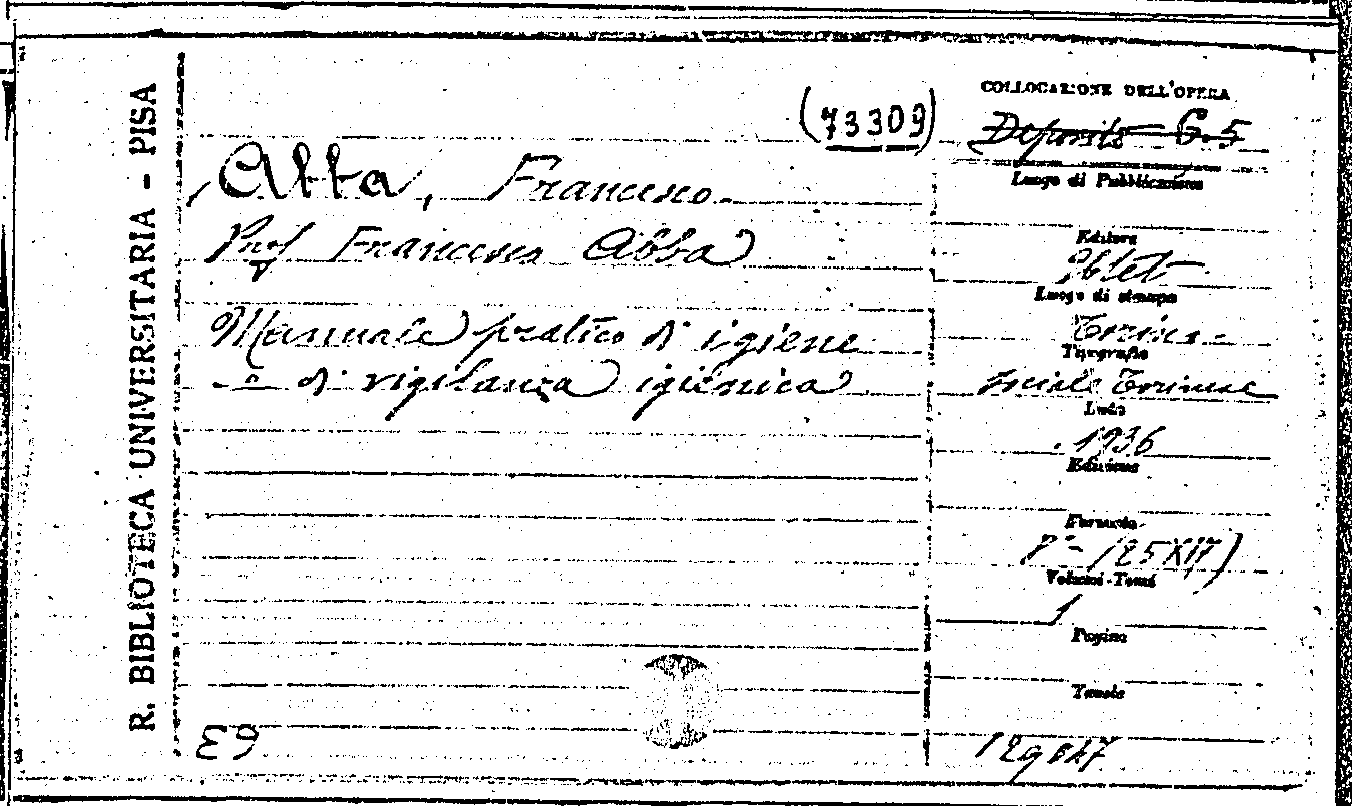 R. BIBLIOTECA UNIVERSITARIA - PISA
(73309)
Abba, Francesco.
Prof Francesco Abba
Manuale pratico di igiene
e di vigilanza igienica
COLLOCAZIONE DELL'OPERA
Deposito G.5
Luogo di Pubblicazione
Editore
Utet
Luogo di stampa
Torino
Tipografia
Sociale Torinese
1936
Edizione
Formato
8° - (25X17)
Volumi - Tomi
1
Pagine
Tavole